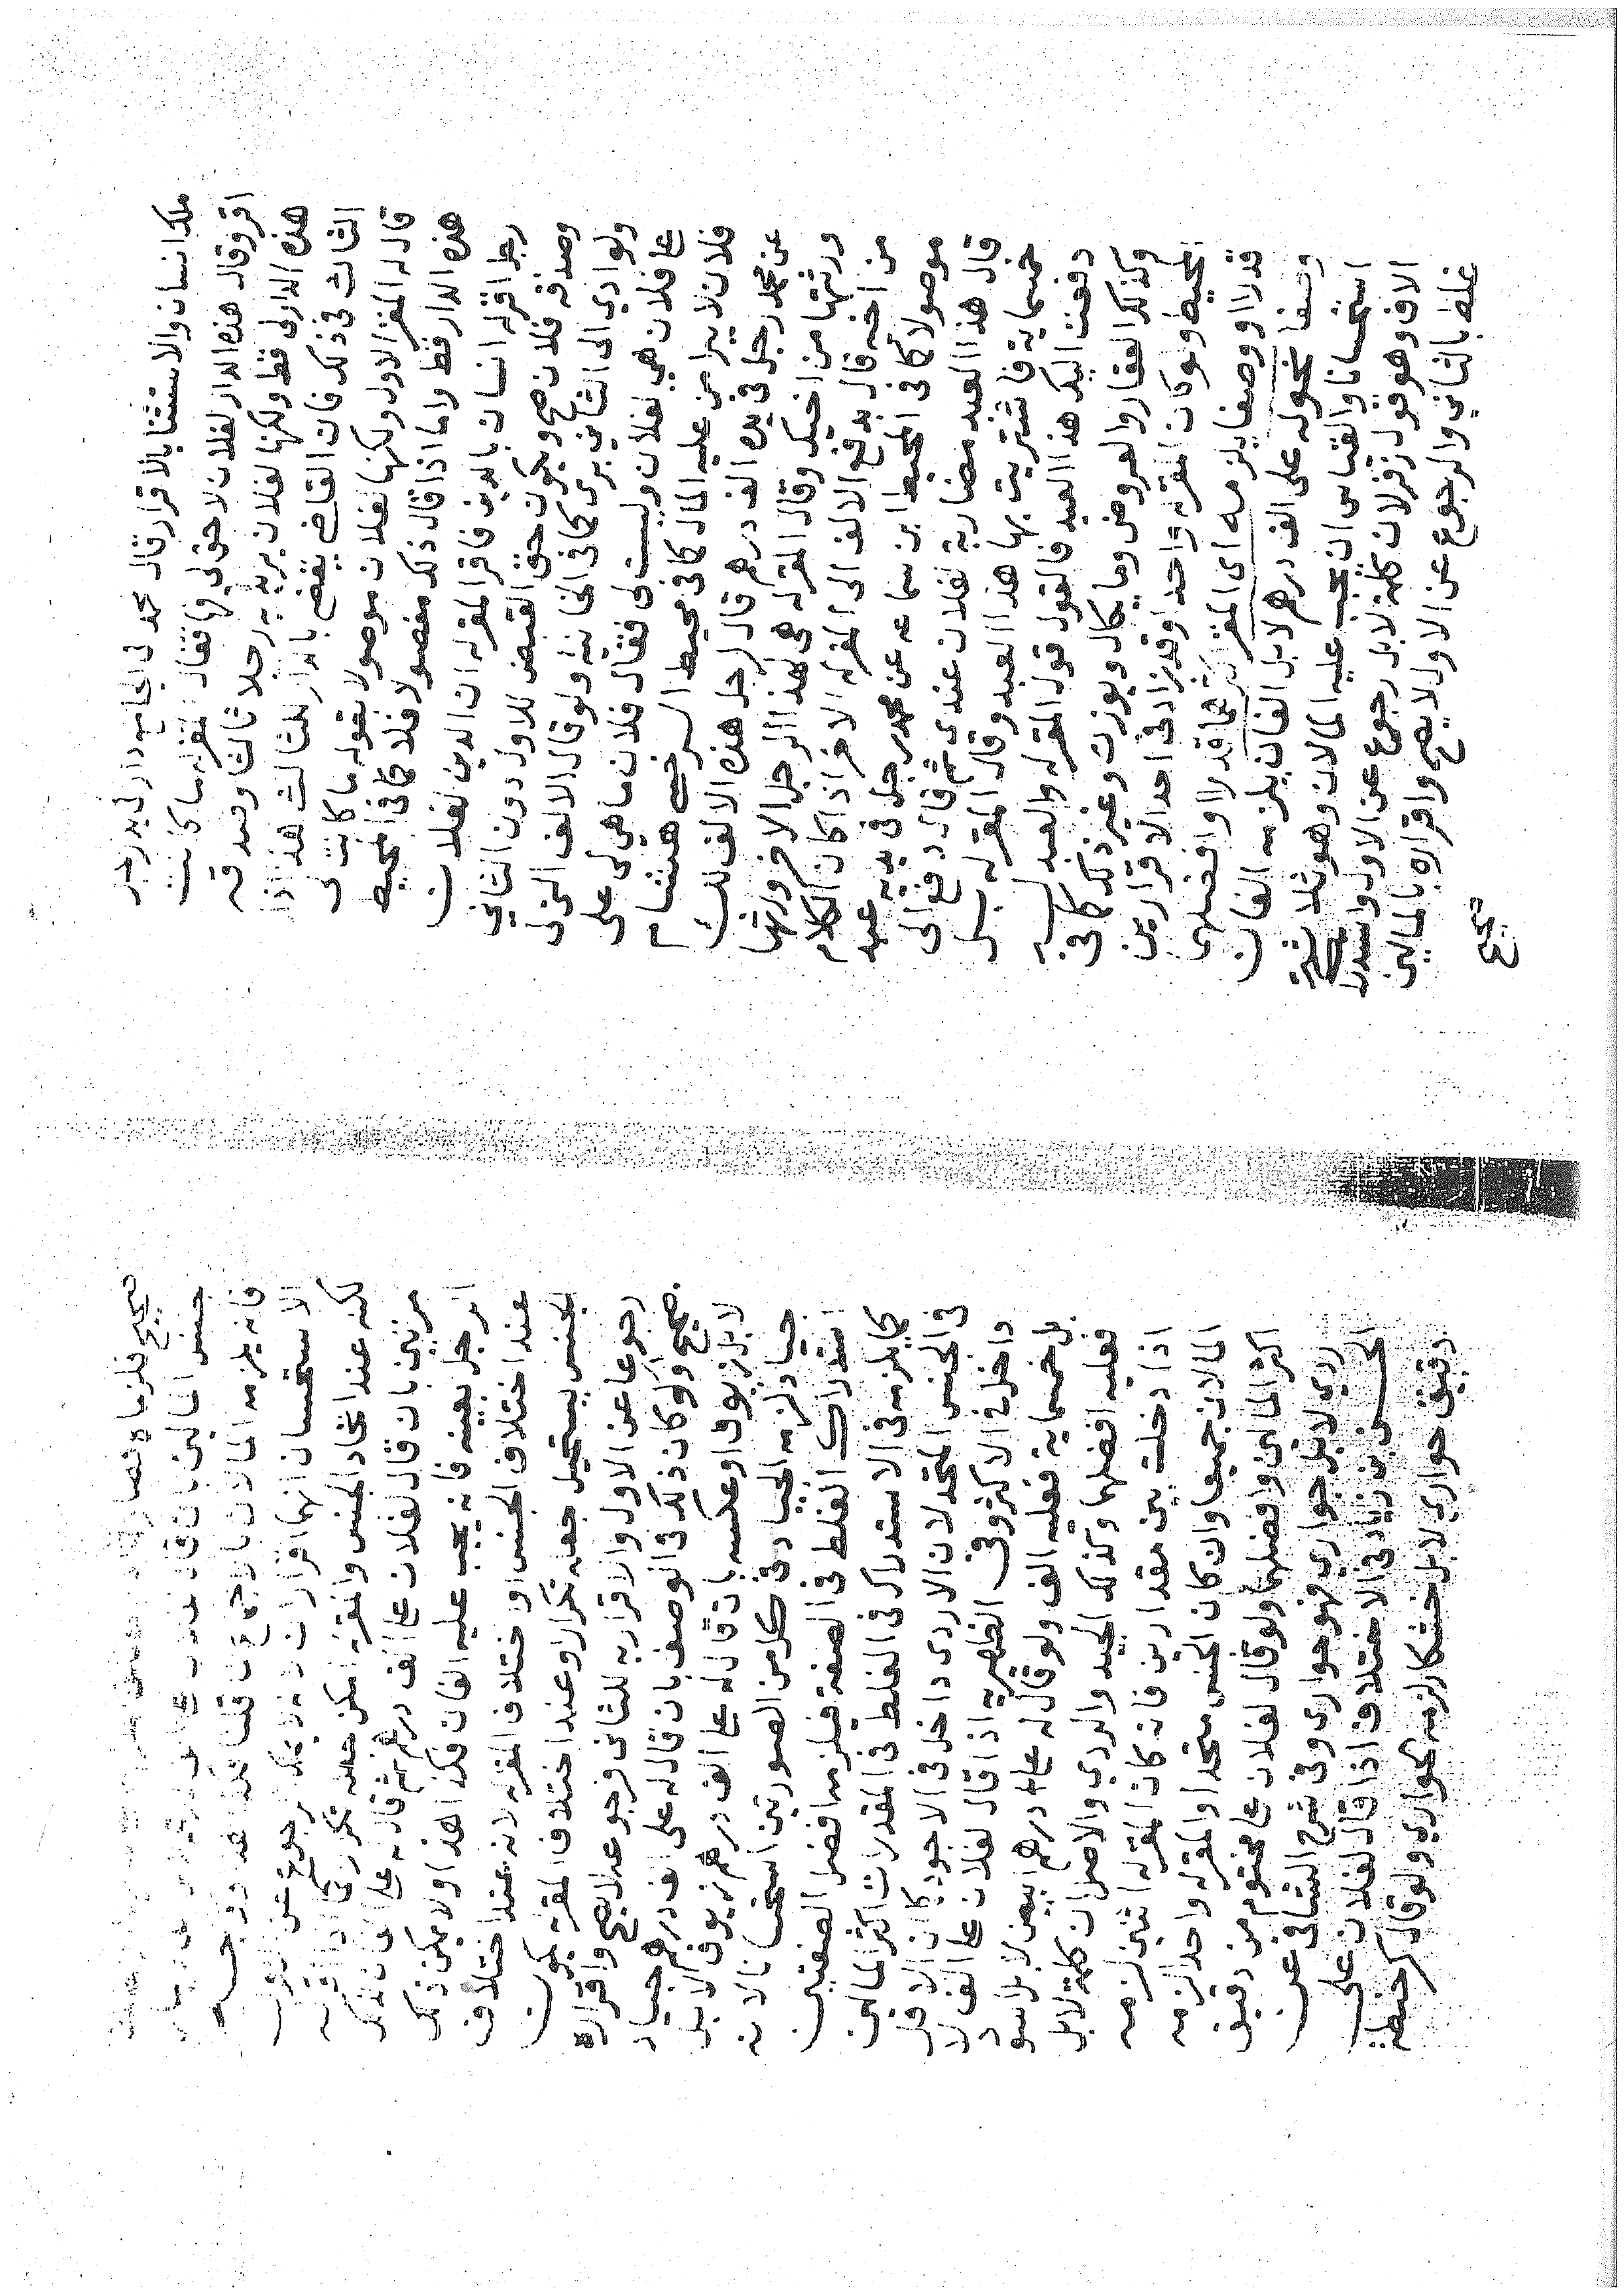 ملك انسان والاستثنا بالاقرار قال محمد في الجامع دار في يد رجل
اقر وقال هذه الدار لفلان لا حق لي فيها فقال المقر له ما كانت
هذه الدار لي قط ولكنها لفلان يريد به رجلا ثالثا وصدقه
الثالث في ذلك فان القاضي يقضي بالدار للثالث هذا اذا
قال له المقر الاول ولكنها لفلان موصولا بقوله ما كانت لي
هذه الدار قط واما اذا قال ذلك مفصولا فلا كما في المحيط
رجل اقر له انسان بالدين فاقر المقر له ان الدين لفلان
وصدقه فلان صح ويكون حق القبض للاول دون الثاني
ولو ادي الى الثاني بري كما في الخانية ولو قال الالف التي لي
على فلان هي لفلان وليست لي فقال فلان ما هي لي على
فلان لا يبرا من عليه المال كما في محيط السرخسي هشام
عن محمد رجل في يده الف درهم قال لرجل هذه الالف لك
ورثتها من اخيك وقال المقر له هي لهذا الرجل الاخر ورثها
من اخيه قال يدفع الالف الى المقر له الاخر اذا كان الكلام
موصولا كما في المحيط ابن سماعه عن محمد رجل في يديه عبد
قال هذا العبد مضاربة لفلان عندي ثم قال دفع الي
خمسماية فاشتريت بها هذا العبد وقال المقر له بل
دفعت اليك هذا العبد فالقول قول المقر له والعبد له
وكذلك العقار والعروض وما يكال ويوزن وغير ذلك كما في
المحيط ولو كان المقر له واحدا وقد زاد في احد الاقرارين
قدرا او وصفا يلزمه اي المقر اكثرهما قدرا وافضلهما
وصفا نحو له على الف درهم لا بل الفان يلزمه الفان
استحسانا والقياس ان يجب عليه المالان وهو ثلاثة
الاف وهو قول زفر لان كلمة لا بل رجوع عن الاول واستدراك
غلط بالثاني والرجوع عن الاول لا يصح واقراره بالمالين
صحيح
صحيح فلزماه فصار
جنس المالين بان قال لفلان
فانه يلزمه المالان بالاجماع قلنا
الاستحسان انهما اقراران رجوع عن
لكنه عند اتحاد الجنس والمقر له امكن جعله تكرارا
مرتين بان قال لفلان علي الف درهم ثم قال له علي
الرجل بعينه فانه يجب عليه الفان فكذا هذا ولا يمكن ذلك
عند اختلاف الجنس او اختلاف المقر له لانه عند اختلاف
الجنس يستحيل جعله تكرارا وعند اختلاف المقر له يكون
رجوعا عن الاول والاقرار به للثاني فرجوعه لا يصح واقراره
صحيح او لو كان ذلك في الوصف بان قال له على الف درهم جياد
لا بل زيوف او عكسه بان قال له علي الف درهم زيوف لا بل
جياد لزمه الجياد في كل من الصورتين استحسانا لانه
استدراك الغلط في الصفة فيلزمه افضل الصفتين
كما يلزمه في الاستدراك في الغلط في المقدرات اكثر المالين
في الجنس المتحد لان الاردى داخل في الاجود كان الاقل
داخل في الاكثر وفي الظهيرية اذا قال لفلان علي الف لا
بل خمسماية فعليه الف ولو قال له علي درهم ابيض لا بل اسود
فعليه افضلهما وكذلك الجيد والردي والاصل ان كلمة لا بل
اذا دخلت بين مقدارين فان كان المقر له اثنين لزمه
المالان جميعا وان كان الجنس متحدا والمقر له واحدا لزمه
اكثر المالين وافضلهما ولو قال لفلان علي مختوم من دقيق
ردي لا بل حواري فهو حواري وفي شرح الشافي عن
الحسن بن زياد في الاختلاف اذا قال لفلان علي
دقيق حواري لا بل خشكار لزمه الحواري ولو قال كر حنطة